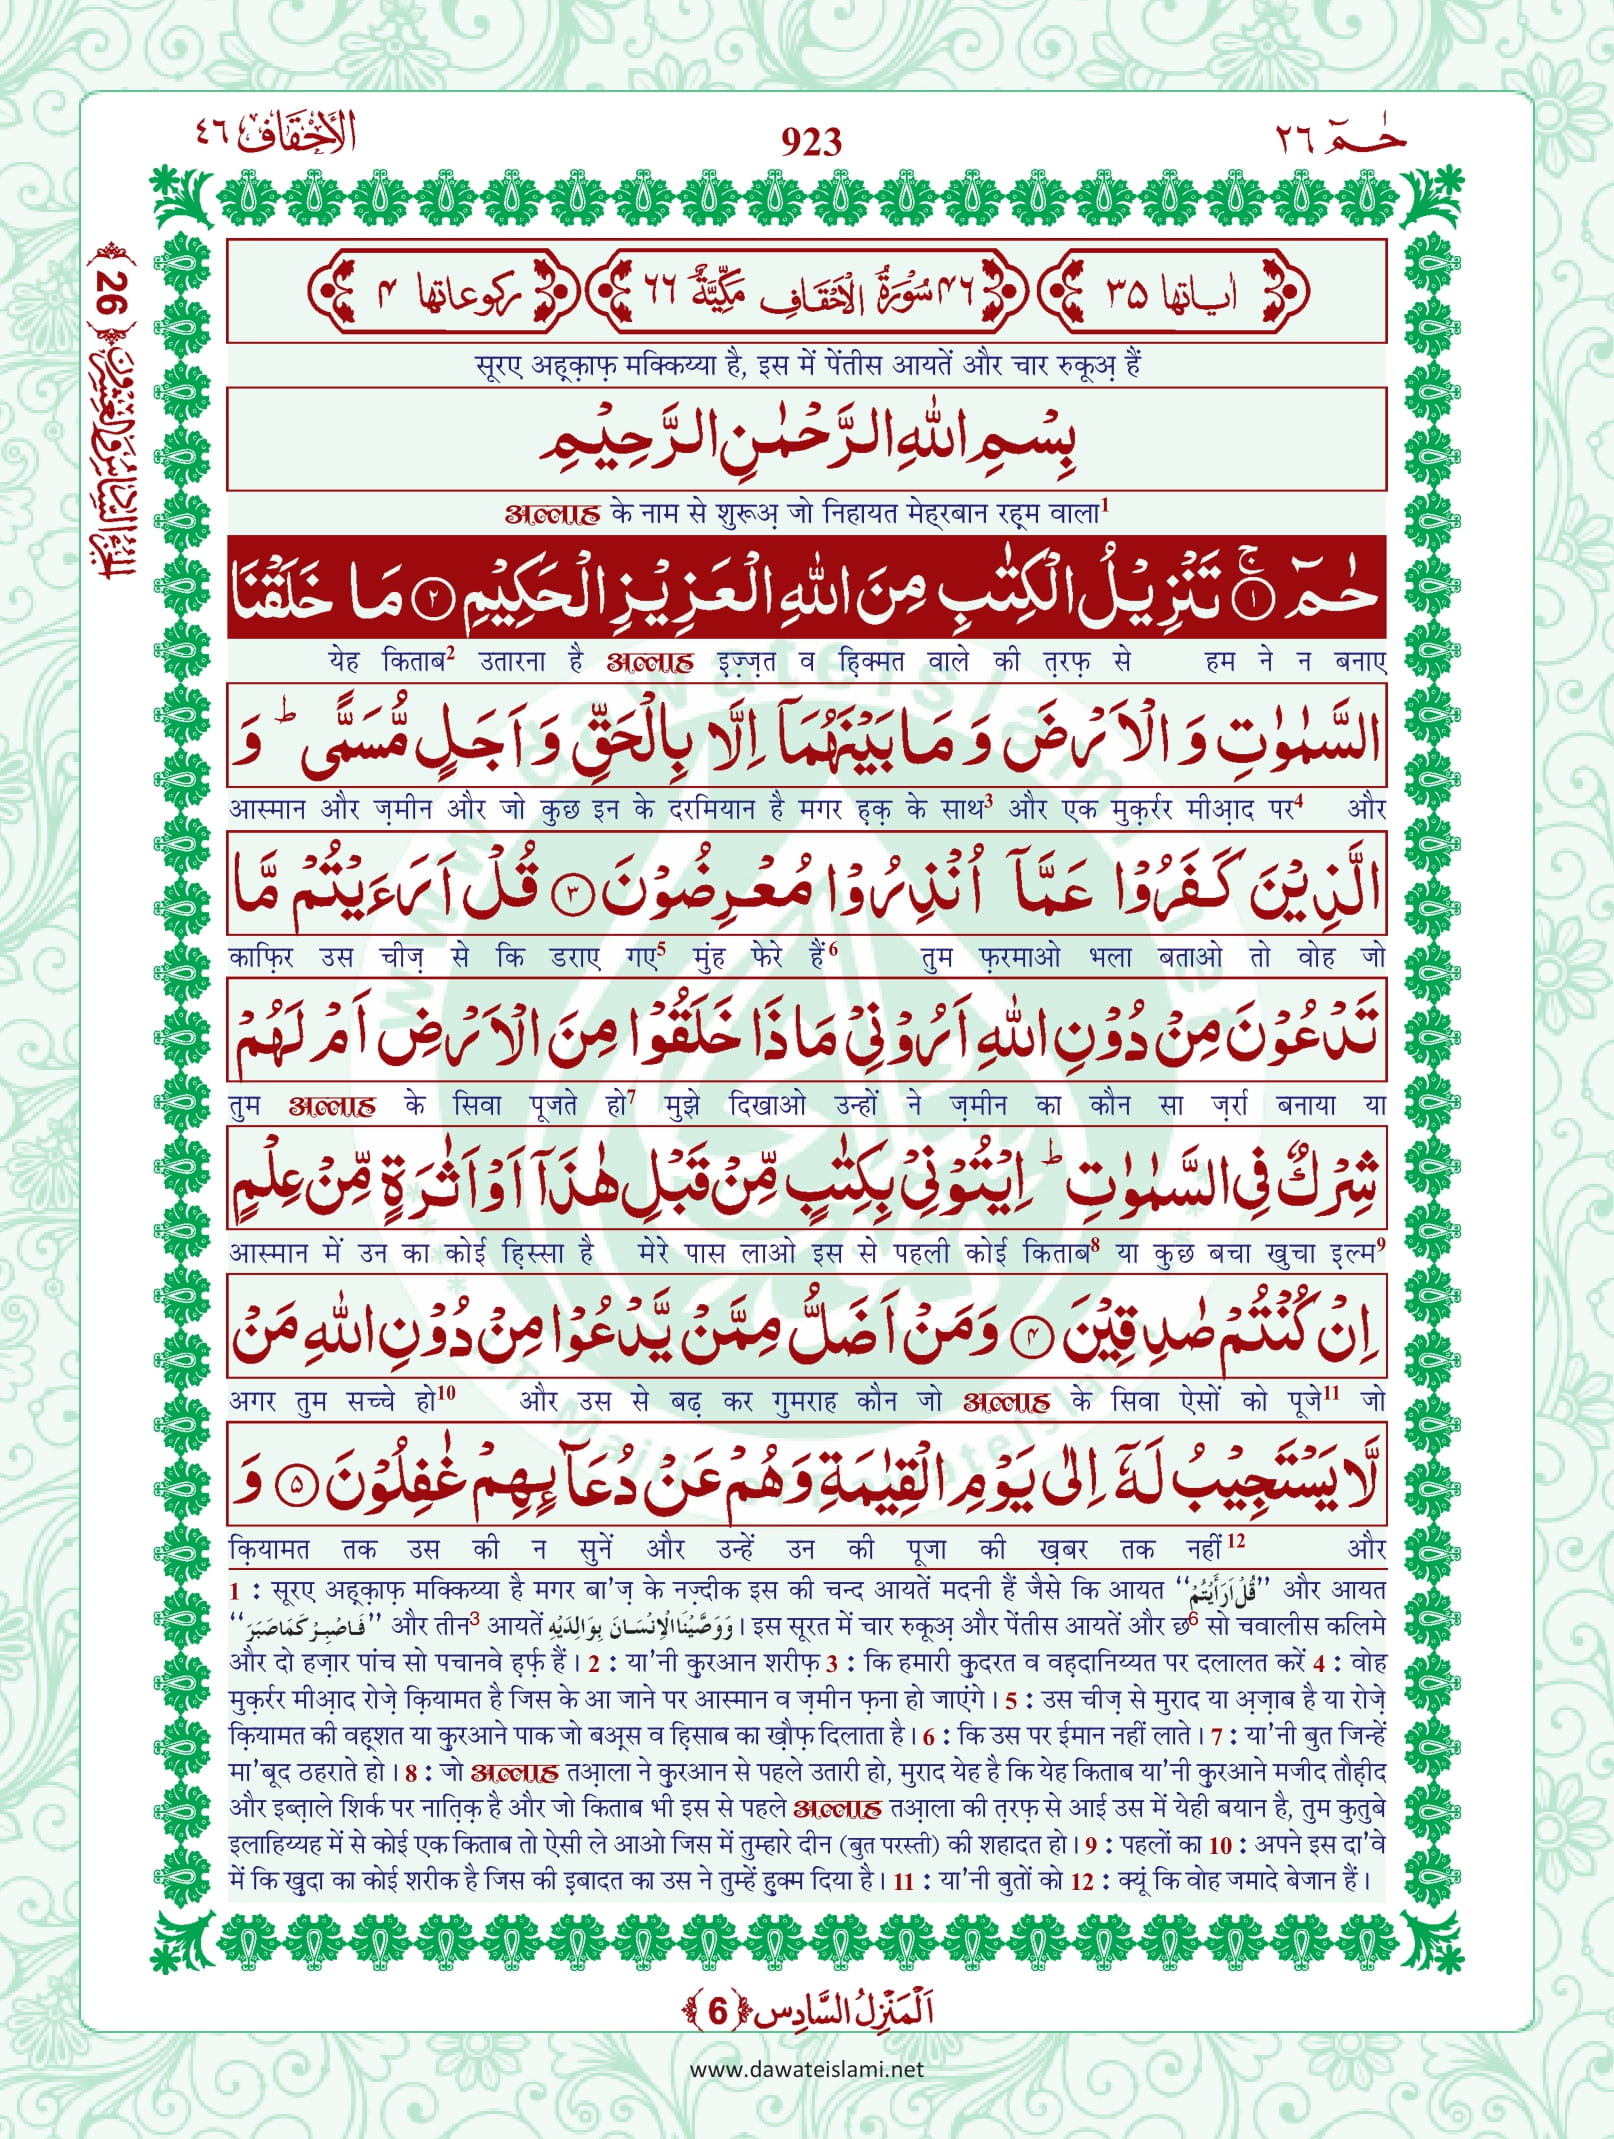 حٰمٓ ٢٦
923
الاَحْقَاف ٤٦
اٰیاتها ٣٥
٤٦ سُوْرَةُ الْاَحْقَافِ مَكِّیَّةٌ ٦٦
ركوعاتها ٤
सूरए अह़्क़ाफ़ मक्किय्या है, इस में पेंतीस आयतें और चार रुकूअ़ हैं
بِسْمِ اللّٰهِ الرَّحْمٰنِ الرَّحِیْمِ
अल्लाह के नाम से शुरूअ़ जो निहायत मेह्‌रबान रह़्म वाला1
حٰمٓ ۚ﴿۱﴾ تَنْزِیْلُ الْكِتٰبِ مِنَ اللّٰهِ الْعَزِیْزِ الْحَكِیْمِ ﴿۲﴾ مَا خَلَقْنَا
येह किताब2 उतारना है अल्लाह इ़ज़्ज़त व ह़िक्मत वाले की त़रफ़ से हम ने न बनाए
السَّمٰوٰتِ وَ الْاَرْضَ وَ مَا بَیْنَهُمَاۤ اِلَّا بِالْحَقِّ وَ اَجَلٍ مُّسَمًّى ؕ وَ
आस्मान और ज़मीन और जो कुछ इन के दरमियान है मगर ह़क़ के साथ3 और एक मुक़र्रर मीआ़द पर4 और
الَّذِیْنَ كَفَرُوْا عَمَّاۤ اُنْذِرُوْا مُعْرِضُوْنَ ﴿۳﴾ قُلْ اَرَءَیْتُمْ مَّا
काफ़िर उस चीज़ से कि डराए गए5 मुंह फेरे हैं6 तुम फ़रमाओ भला बताओ तो वोह जो
تَدْعُوْنَ مِنْ دُوْنِ اللّٰهِ اَرُوْنِیْ مَاذَا خَلَقُوْا مِنَ الْاَرْضِ اَمْ لَهُمْ
तुम अल्लाह के सिवा पूजते हो7 मुझे दिखाओ उन्हों ने ज़मीन का कौन सा ज़र्रा बनाया या
شِرْكٌ فِی السَّمٰوٰتِ ؕ اِیْتُوْنِیْ بِكِتٰبٍ مِّنْ قَبْلِ هٰذَاۤ اَوْ اَثٰرَةٍ مِّنْ عِلْمٍ
आस्मान में उन का कोई ह़िस्सा है मेरे पास लाओ इस से पहली कोई किताब8 या कुछ बचा खुचा इ़ल्म9
اِنْ كُنْتُمْ صٰدِقِیْنَ ﴿۴﴾ وَ مَنْ اَضَلُّ مِمَّنْ یَّدْعُوْا مِنْ دُوْنِ اللّٰهِ مَنْ
अगर तुम सच्चे हो10 और उस से बढ़ कर गुमराह कौन जो अल्लाह के सिवा ऐसों को पूजे11 जो
لَّا یَسْتَجِیْبُ لَهٗۤ اِلٰى یَوْمِ الْقِیٰمَةِ وَ هُمْ عَنْ دُعَآىٕهِمْ غٰفِلُوْنَ ﴿۵﴾ وَ
क़ियामत तक उस की न सुनें और उन्हें उन की पूजा की ख़बर तक नहीं12 और
1 : सूरए अह़्क़ाफ़ मक्किय्या है मगर बा'ज़ के नज़्दीक इस की चन्द आयतें मदनी हैं जैसे कि आयत ‘‘قُلْ اَرَأَيْتُمْ’’ और आयत
‘‘فَاصْبِرْ كَمَا صَبَرَ’’ और तीन3 आयतें وَوَصَّيْنَا الْاِنْسَانَ بِوَالِدَيْهِ । इस सूरत में चार रुकूअ़ और पेंतीस आयतें और छ6 सो चवालीस कलिमे
और दो हज़ार पांच सो पचानवे ह़र्फ़ हैं। 2 : या'नी कुरआन शरीफ़ 3 : कि हमारी कुदरत व वह़दानिय्यत पर दलालत करें 4 : वोह
मुक़र्रर मीआ़द रोज़े क़ियामत है जिस के आ जाने पर आस्मान व ज़मीन फ़ना हो जाएंगे। 5 : उस चीज़ से मुराद या अ़ज़ाब है या रोज़े
क़ियामत की वह़्शत या कुरआने पाक जो बअ़्स व ह़िसाब का ख़ौफ़ दिलाता है। 6 : कि उस पर ईमान नहीं लाते। 7 : या'नी बुत जिन्हें
मा'बूद ठहराते हो। 8 : जो अल्लाह तआ़ला ने कुरआन से पहले उतारी हो, मुराद येह है कि येह किताब या'नी कुरआने मजीद तौह़ीद
और इब्त़ाले शिर्क पर नात़िक़ है और जो किताब भी इस से पहले अल्लाह तआ़ला की त़रफ़ से आई उस में येही बयान है, तुम कुतुबे
इलाहिय्यह में से कोई एक किताब तो ऐसी ले आओ जिस में तुम्हारे दीन (बुत परस्ती) की शहादत हो। 9 : पहलों का 10 : अपने इस दा'वे
में कि खुदा का कोई शरीक है जिस की इ़बादत का उस ने तुम्हें हुक्म दिया है। 11 : या'नी बुतों को 12 : क्यूं कि वोह जमादे बेजान हैं।
اَلْمَنْزِلُ السَّادِس ﴿6﴾
www.dawateislami.net